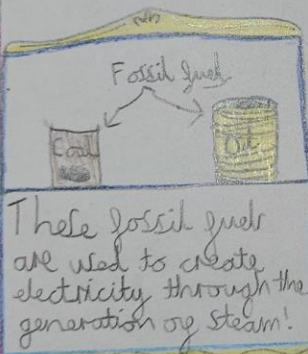 Fossil fuels
Coal
Oil
These fossil fuels
are used to create
electricity through the
generation of steam!